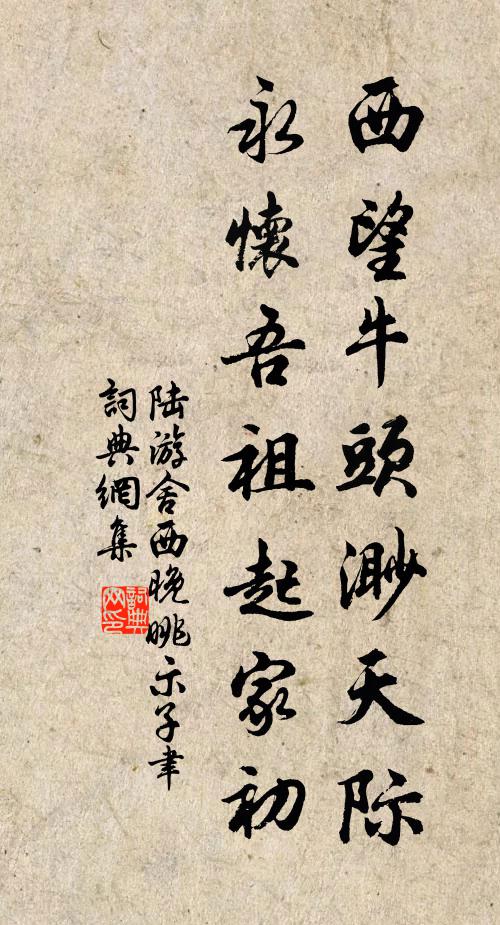 西望牛頭渺天际
永懷吾祖起家初
陆游舍西晚眺示子聿
詞典網集
詞典网印